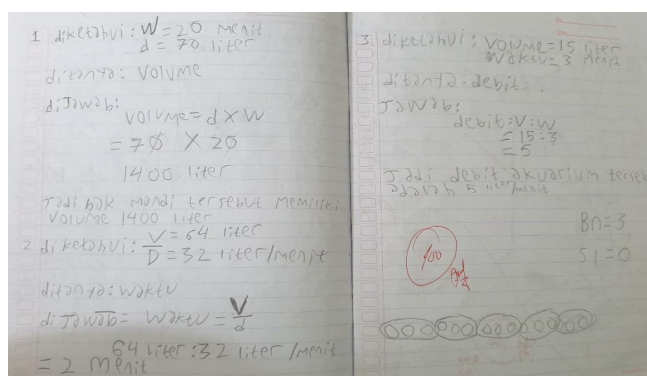 1. diketahui: W = 20 menit
d = 70 liter
ditanya: volume
diJawab:
volume = d x W
= 70 X 20
1400 liter
Jadi bak mandi tersebut memiliki
volume 1400 liter
2 diketahui: V = 64 liter
D = 32 liter/menit
ditanya: waktu
diJawab = waktu = V/d
64 liter : 32 liter / menit
= 2 menit
3. diketahui: volume = 15 liter
waktu = 3 menit
ditanya = debit:.
Jawab:
debit = V : W
= 15 : 3
= 5
Jadi debit akuarium terse
adalah 5 liter/menit
Bn = 3
Sl = 0
100